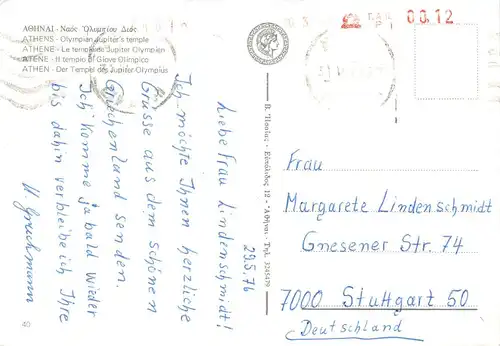 ΑΘΗΝΑΙ - Ναὸς Ὀλυμπίου Διός
ATHENS - Olympian Jupiter's temple
ATHENE - Le temple de Jupiter Olympien
ATENE - Il tempio di Giove Olimpico
ATHEN - Der Tempel des Jupiter Olympius
29.5.76
Liebe Frau Lindenschmidt!
Ich möchte Ihnen herzliche
Grüsse aus dem schönen
Griechenland senden.
Ich komme ja bald wieder
bis dahin verbleibe ich Ihre
40
Ἀθῆναι - Τηλ. 3245479
00.12
Frau
Margarete Lindenschmidt
Gnesener Str. 74
7000 Stuttgart 50
Deutschland